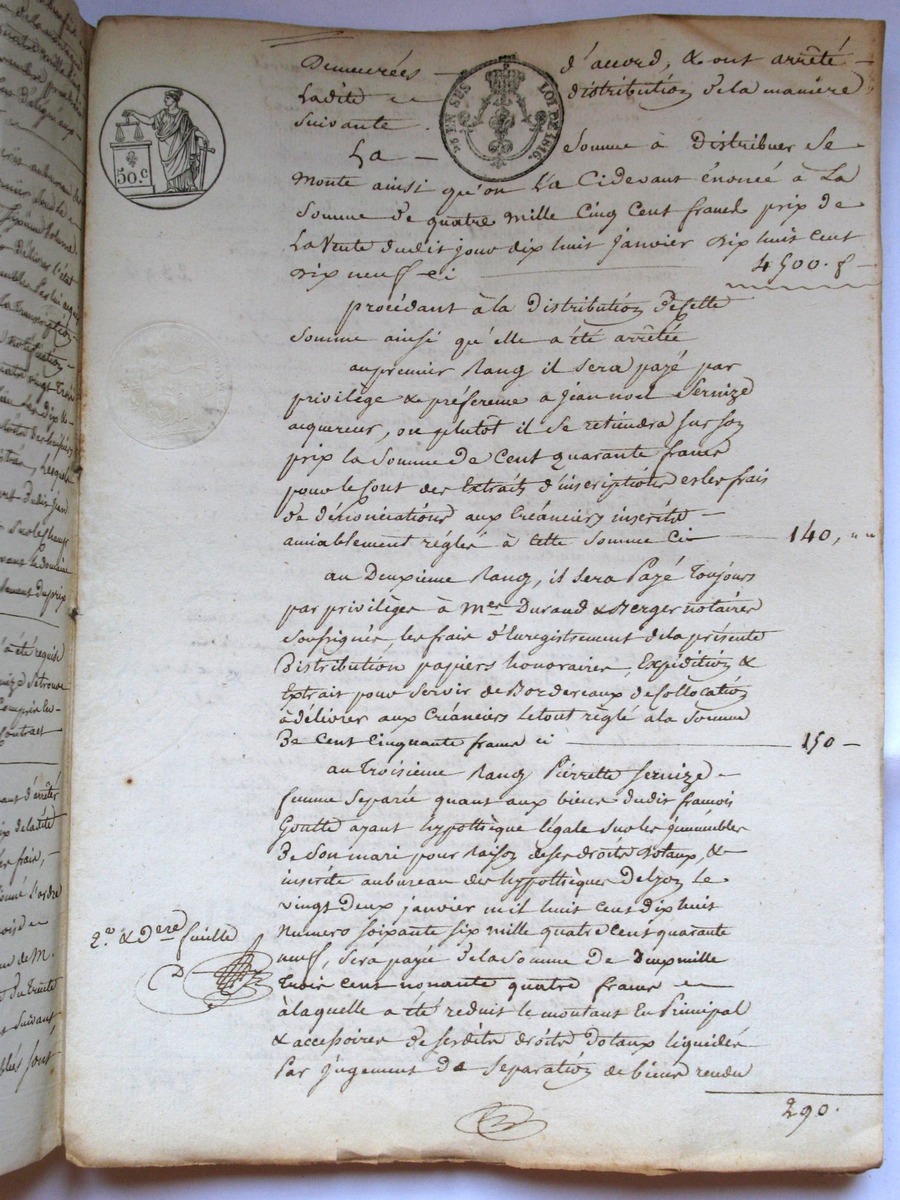 Demeurées d'accord, & ont arrêté
Ladite distribution de la manière
Suivante.
50.c
25 EN SUS LOI DE 1816.
La Somme à distribuer se
monte ainsi qu'on l'a Cidevant énoncé à La
Somme de quatre mille Cinq Cent francs prix de
La Vente dudit jour dix huit janvier dix huit cent
dix neuf ci 4500. f
procédant à la distribution de cette
Somme ainsi qu'elle a été arrêtée
au premier Rang il sera payé par
privilège & préférence à jean noel Sernize
acquereur, ou plutôt il se retiendra sur son
prix la Somme de Cent quarante francs
pour le Cout des Extraits d'inscriptions et les frais
de dénonciations aux Créanciers inscrits
amiablement réglé à cette Somme Ci 140, " "
au Deuxieme Rang, il sera Payé Toujours
par privilèges à mes Durand & Berger notaires
Soussignés les frais d'Enregistrement de la présente
Distribution papiers honoraires, Expédition &
Extrait pour servir de Bordereaux de Collocation
à délivrer aux Créanciers le tout règlé a la Somme
De Cent Cinquante francs ci 150
au Troisieme Rang Pierrette Sernize
femme Separée quant aux biens dudit francois
Goutte ayant hypothèque légale sur les immeubles
de Son mari pour Raison de ses droits Dotaux, &
inscrite au bureau des hypothèques de Lyon le
vingt Deux janvier mil huit Cent dix huit
Numero soixante six mille quatre Cent quarante
neuf, sera payée de la Somme de Deux mille
Trois Cent nonante quatre francs
à laquelle a été reduit le montant En Principal
& accessoires de sesdits droits dotaux liquidés
Par jugement de Séparation de biens rendu
2.e & Dere feuille
290.